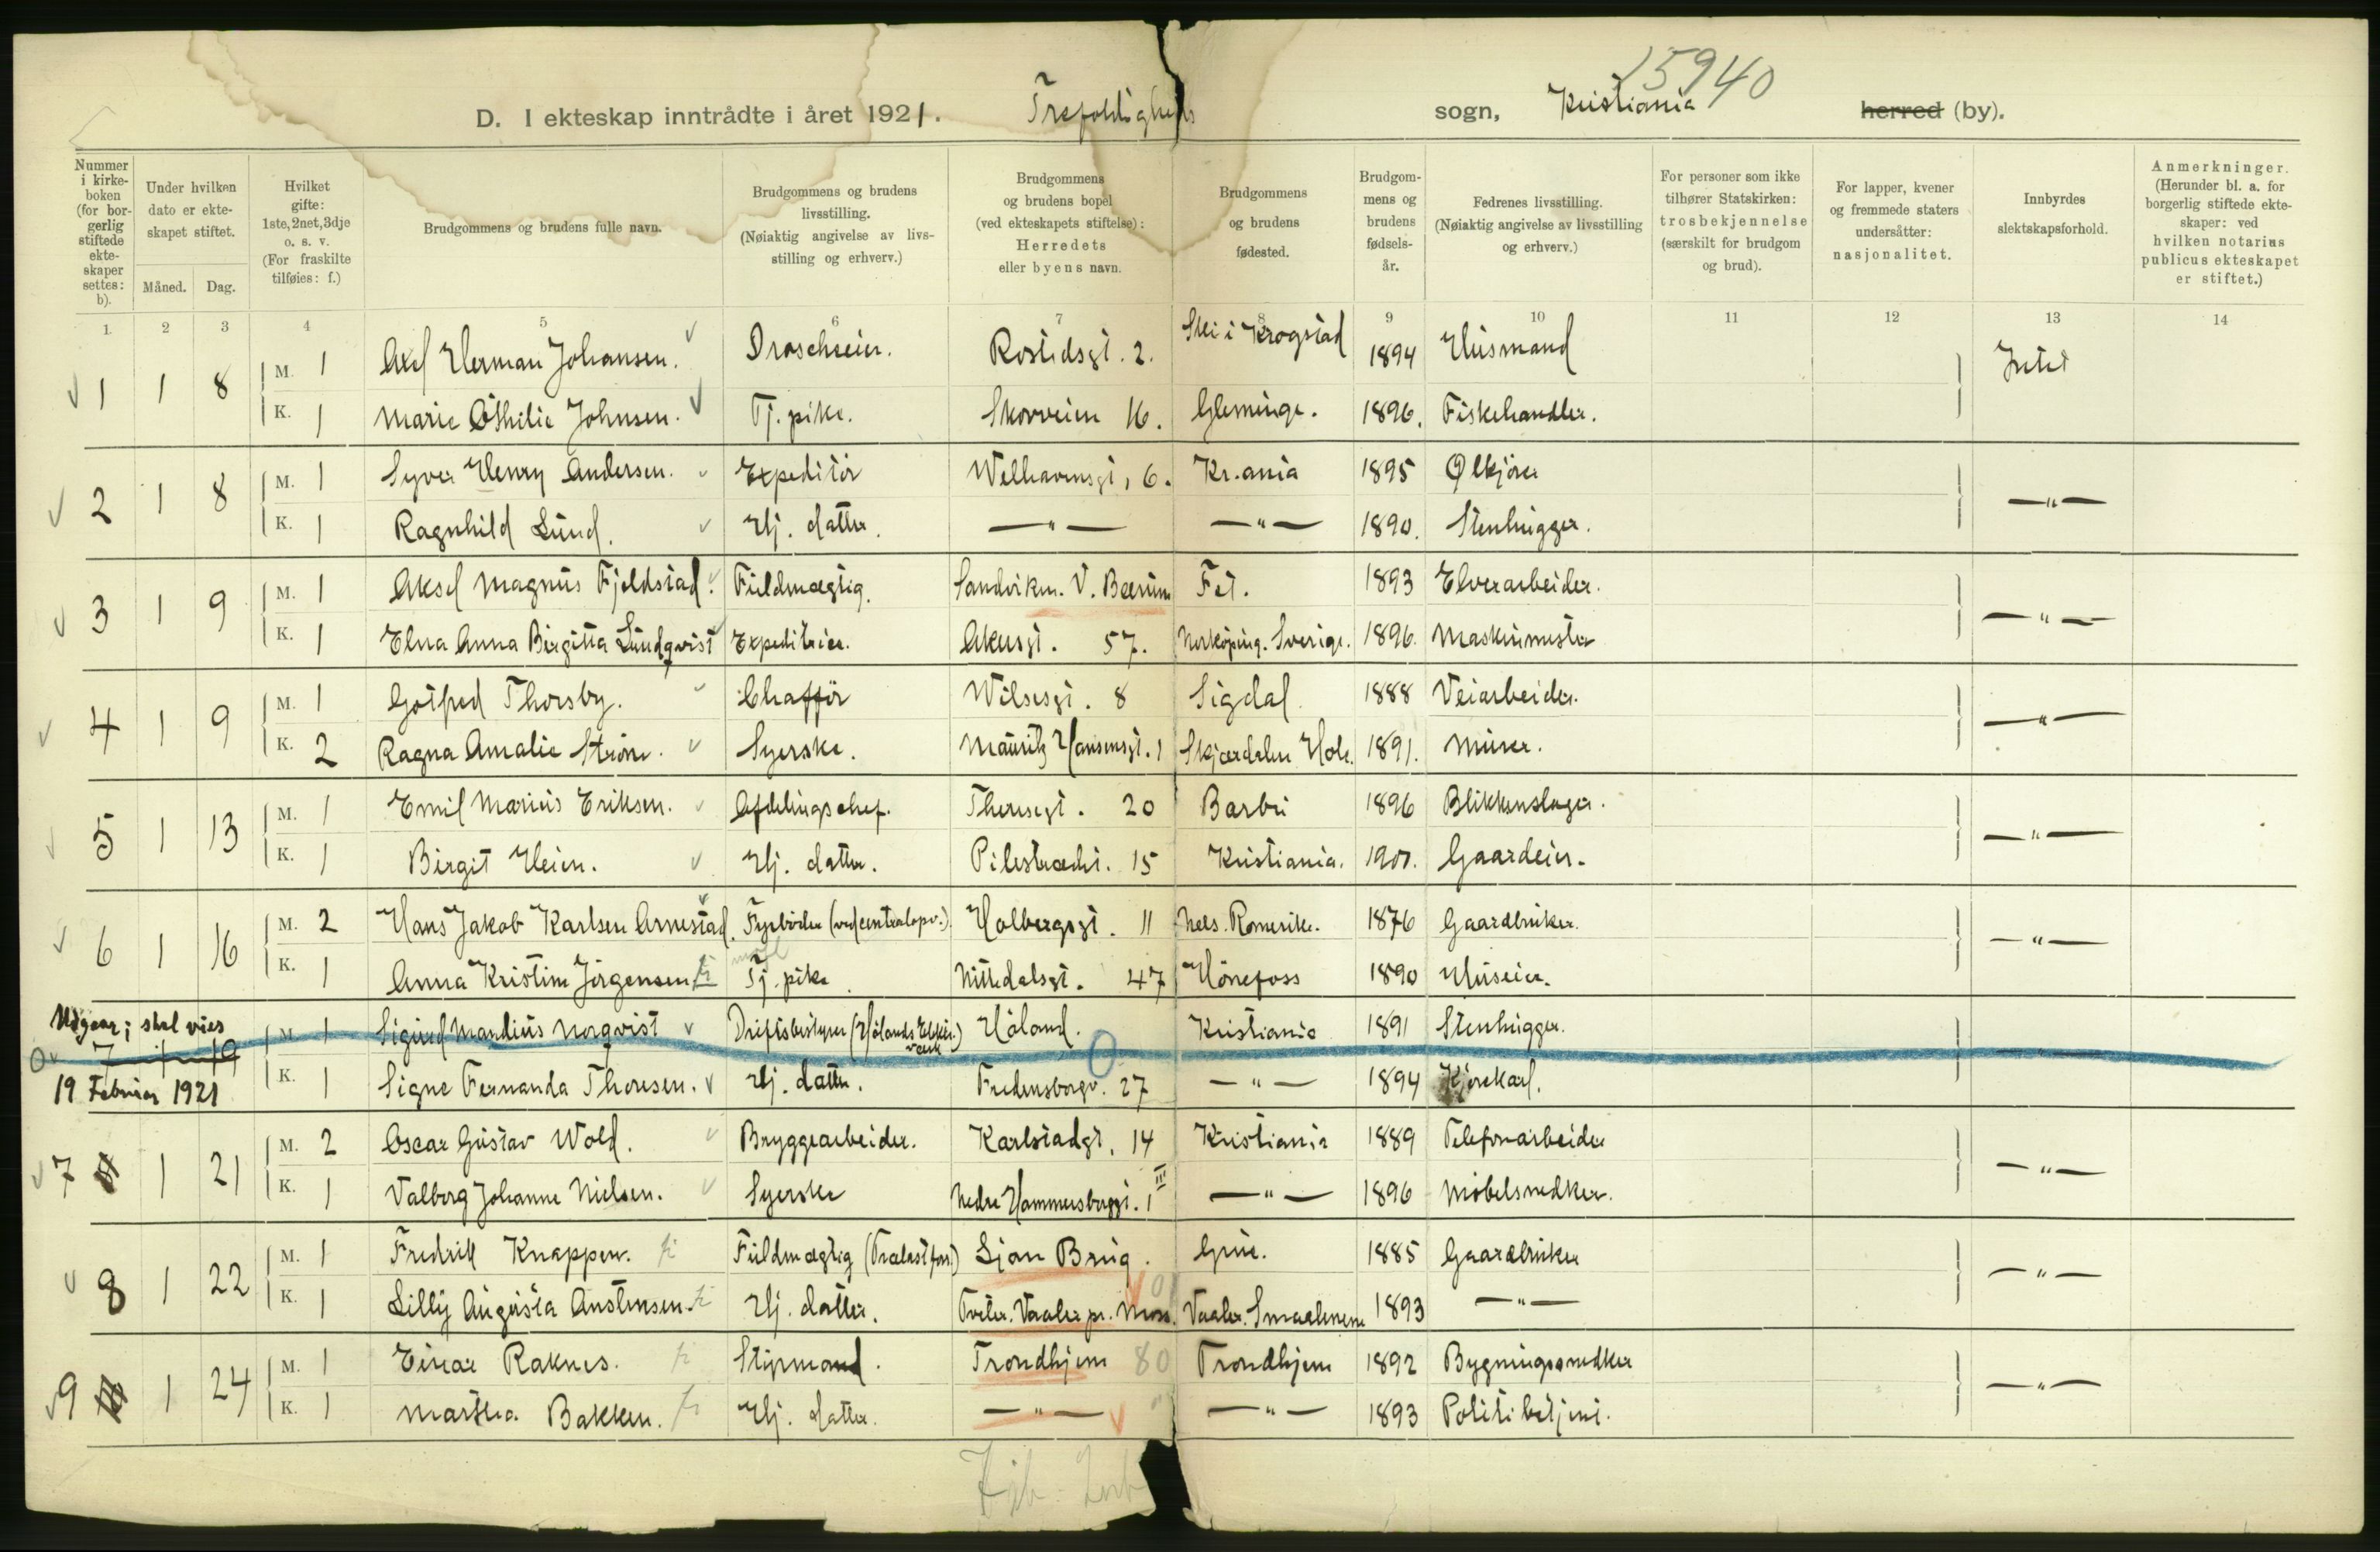 15940
D. I ekteskap inntrådte i året 1921. Trefoldigheds sogn, Kristiania herred (by).
Nummer i kirke-boken (for bor-gerlig stiftede ekte-skaper settes: b).
Under hvilken dato er ekte-skapet stiftet.
Måned. Dag.
Hvilket gifte: 1ste, 2net, 3dje o. s. v. (For fraskilte tilføies: f.)
Brudgommens og brudens fulle navn.
Brudgommens og brudens livsstilling. (Nøiaktig angivelse av livs-stilling og erhverv.)
Brudgommens og brudens bopel (ved ekteskapets stiftelse): Herredets eller byens navn.
Brudgommens og brudens fødested.
Brudgom-mens og brudens fødsels-år.
Fedrenes livsstilling. (Nøiaktig angivelse av livsstilling og erhverv.)
For personer som ikke tilhører Statskirken: trosbekjennelse (særskilt for brudgom og brud).
For lapper, kvener og fremmede staters undersåtter: nasjonalitet.
Innbyrdes slektskapsforhold.
Anmerkninger. (Herunder bl. a. for borgerlig stiftede ekte-skaper: ved hvilken notarius publicus ekteskapet er stiftet.)
1 2 3 4 5 6 7 8 9 10 11 12 13 14
1 1 8 M. 1 Axel Herman Johansen. Droscheeier. Rostedsgt. 2. Ski i Krogstad 1894 Husmand Intet
K. 1 Marie Othilie Johnsen. Tj. pike. Skovveien 16. Glemminge. 1896. Fiskehandler.
2 1 8 M. 1 Syver Henry Andersen. Expeditør Welhavensgt. 6. Kr.ania 1895 Ølkjører —"—
K. 1 Ragnhild Lund. Hj. datter. —"— —"— 1890. Stenhugger.
3 1 9 M. 1 Aksel Magnus Fjeldstad. Fuldmægtig. Sandviken. V. Bærum Fet. 1893 Elvearbeider. —"—
K. 1 Elna Anna Birgitta Lundqvist Expeditrice. Akersgt. 57. Norköping. Sverige. 1896. Maskinmester
4 1 9 M. 1 Gotfred Thorsby. Chaffør Wilsesgt. 8 Sigdal 1888 Veiarbeider. —"—
K. 2 Ragna Amalie Strøm. Syerske. Mauritz Hansensgt. 1 Skjærdalen Hole. 1891. Murer.
5 1 13 M. 1 Emil Marius Eriksen. Afdelingschef. Theresegt. 20 Barbu 1896 Blikkenslager. —"—
K. 1 Birgit Heien. Hj. datter. Pilestrædet. 15 Kristiania. 1901. Gaardeier.
6 1 16 M. 2 Hans Jakob Karlsen Arnestad. Fyrbøder (ved centralopv.) Holbergsgt. 11 Nes. Romerike. 1876 Gaardbruker. —"—
K. 1 Anna Kristine Jørgensen Tj. pike Nittedalsgt. 47 Hønefoss 1890 Huseier.
Udgaar; skal vies
7 1 19 M. 1 Sigurd Mandius Norqvist Driftsbestyrer (Hølands Elektr. værk) Høland. Kristiania 1891 Stenhugger. —"—
19 Februar 1921 K. 1 Signe Fernanda Thoresen. Hj. datter. Fredensborgv. 27 —"— 1894 Kjørekarl.
7 1 21 M. 2 Oscar Gustav Wold. Bryggearbeider. Karlstadgt. 14 Kristiania 1889 Telefonarbeider —"—
K. 1 Valborg Johanne Nielsen. Syerske Nedre Hammersborggt. 1 III —"— 1896 Møbelsnedker.
8 1 22 M. 1 Fredrik Knappen. Fuldmægtig (Trælastforr.) Ljan Brug. Grue. 1885 Gaardbruker —"—
K. 1 Lilly Augusta Anstensen. Hj. datter. Tveter. Vaaler pr. Moss. Vaaler. Smaalenene 1893 —"—
9 1 24 M. 1 Einar Raknes. Styrmand. Trondhjem 80 Trondhjem 1892 Bygningssnedker —"—
K. 1 Martha Bakken. Hj. datter. —"— —"— 1893 Politibetjent.